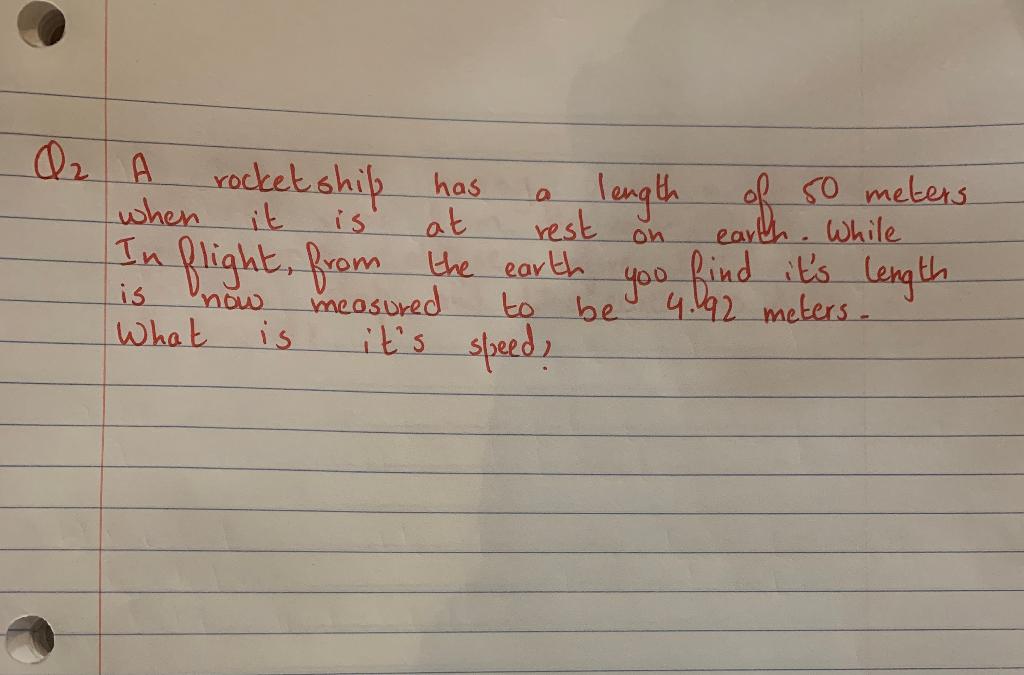 Q2 A rocket ship has a length of 50 meters
when it is at rest on earth. While
In flight, from the earth you find it's length
is now measured to be 4.92 meters.
What is it's speed?